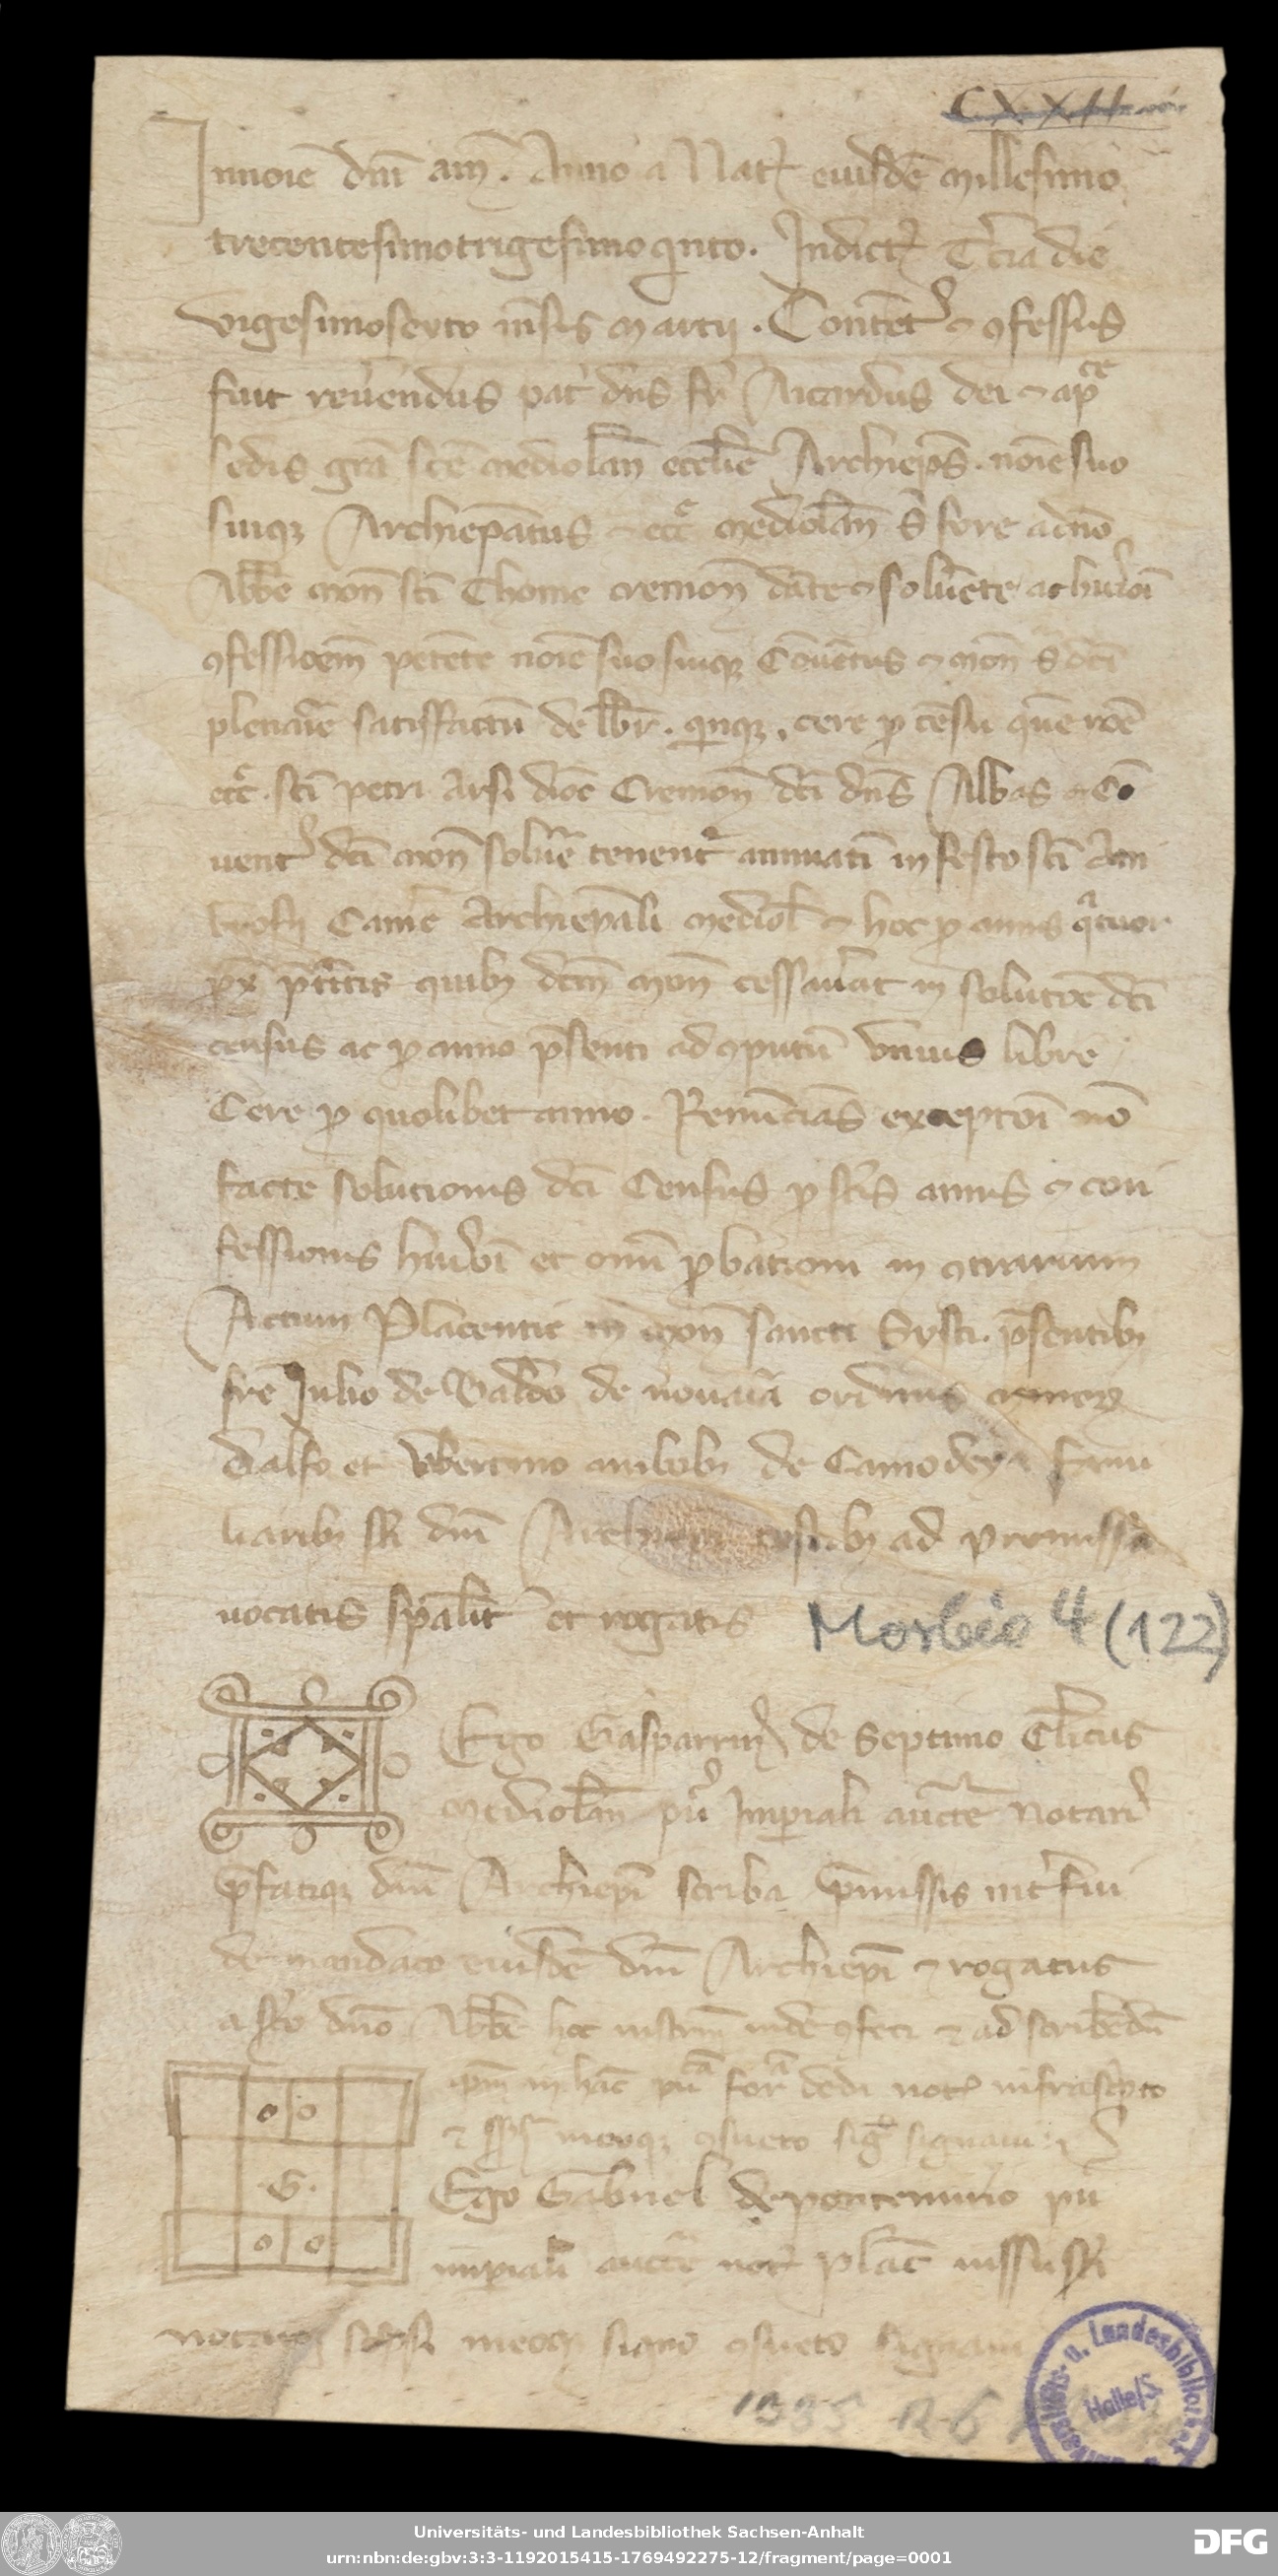 CXXII
Innoīe dnī am̄. Anno a Nat᷒ eiusdē millesimo
trecentesimotrigesimo qinto. Indict᷒ Tcia die
vigesimosexto m̄sis martii. Contēt᷒ ⁊ ꝯfessus
fuit reuēndus pat̓ dn̄s fr̄ Aicardus dei ⁊ apce
sedis gr̄a scē mediolan̄ eccl̄ie Archiep̄s. noīe suo
suiqꝫ Archiep̄atus ⁊ ecce mediolan̄ S fore a dno
Abb̄e mon̄ scī Thome cremon̄ dāte ⁊ soluēte ac hui᷒oi
ꝯfessioem̄ petēte noīe suo suiqꝫ Cōuētus ⁊ mon̄ S dcī
plenarie satisfactū de libr̄. qinqꝫ. cere ꝑ cēsu quē noīe
ecc̄e. scī petri Arsi dioc̄ Cremon̄ dcī dn̄s Abbas ⁊ Cō
uent᷒ dcī mon̄ soluē tenent᷒ annuatī in festo scī Am
brosii Camē Archiep̄ali mediol̄ ⁊ hoc ꝑ annis qatuor
px̄ p̄t̄itis quibꝫ dcm̄ mon̄ cessauat in solutōe dcī
census ac ꝑ anno p̄senti ad ꝯputū vnius libre
Cere ꝑ quolibet anno. Renūcias exceptōi nō
facte solutionis dcī Census ꝑ sc̄is annis ⁊ con
fessionis hui᷒oi et omī ꝓbationi in ꝯtrarium
Actum Placentie in mon̄ sancti Systi. p̄sentibꝫ
fr̄e Julio de Baldo de nouaīa ordinis
Dalfo et Vbertino de Camodeya fami
liaribꝫ sc̄i dnī Archiep̄i testibꝫ ad premissa
uocatis sp̄alit̓ et rogatis
Morbio 4 (122)
Ego Gasparrin᷒ de Septimo Cl̄icus
mediolan̄ pu᷒ Imꝑiali auctē Notari᷒
p̄fatiqꝫ dnī Archiep̄i scriba p̄missis int̓fui
de mandato eiusdē dnī Archiep̄i ⁊ rogatus
a sc̄o dnō Abb̄e hoc instrm̄ inde ꝯfeci ⁊ ad scribēdū
ip̄m in hāc pu᷒a fora dedi not᷒ infrascpto
⁊ meoqꝫ ꝯsueto sigo signaui
.G.
Ego Gabriel de pontenurio pu᷒
imꝑiali auctē not᷒ plac̄ iussu sc̄i
notarii sc̄psi meoqꝫ signo ꝯsueto signaui
1335
Universitäts- u. Landesbibliothek
Halle/S.
Universitäts- und Landesbibliothek Sachsen-Anhalt
urn:nbn:de:gbv:3:3-1192015415-1769492275-12/fragment/page=0001
DFG